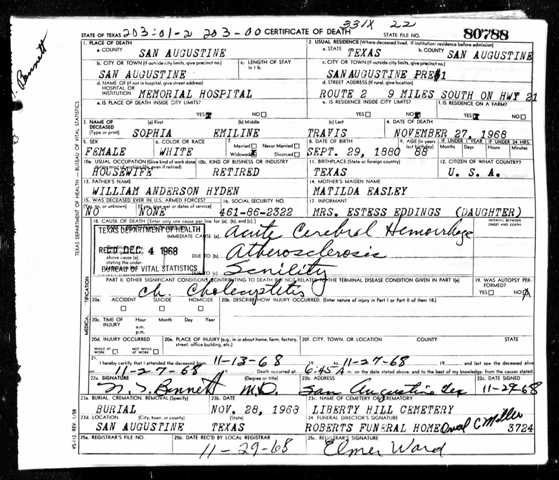 Bennett
331X 22
STATE OF TEXAS 203-01-2 203-00 CERTIFICATE OF DEATH STATE FILE NO. 80788
1. PLACE OF DEATH
a. COUNTY SAN AUGUSTINE
2. USUAL RESIDENCE (Where deceased lived. If institution: residence before admission)
a. STATE TEXAS b. COUNTY SAN AUGUSTINE
b. CITY OR TOWN (If outside city limits, give precinct no.) SAN AUGUSTINE
c. LENGTH OF STAY in 1 b.
c. CITY OR TOWN (If outside city limits, give precinct no.) SAN AUGUSTINE PRE#1
d. NAME OF (If not in hospital, give street address) HOSPITAL OR INSTITUTION MEMORIAL HOSPITAL
d. STREET ADDRESS (If rural, give location) ROUTE 2 9 MILES SOUTH ON HWY 21
e. IS PLACE OF DEATH INSIDE CITY LIMITS? YES NO
e. IS RESIDENCE INSIDE CITY LIMITS? YES NO
f. IS RESIDENCE ON A FARM? YES NO
3. NAME OF DECEASED (Type or print) (a) First SOPHIA (b) Middle EMILINE (c) Last TRAVIS
4. DATE OF DEATH NOVEMBER 27, 1968
5. SEX FEMALE
6. COLOR OR RACE WHITE
7. Married Never Married Widowed Divorced
8. DATE OF BIRTH SEPT. 29, 1880
9. AGE (In years last birthday) 88
IF UNDER 1 YEAR IF UNDER 24 HRS.
10a. USUAL OCCUPATION (Give kind of work done HOUSEWIFE
10b. KIND OF BUSINESS OR INDUSTRY RETIRED
11. BIRTHPLACE (State or foreign country) TEXAS
12. CITIZEN OF WHAT COUNTRY? U. S. A.
13. FATHER'S NAME WILLIAM ANDERSON HYDEN
14. MOTHER'S MAIDEN NAME MATILDA EASLEY
15. WAS DECEASED EVER IN U.S. ARMED FORCES? (Yes, no, or unknown) (If yes, give war or dates of service) NO NONE
16. SOCIAL SECURITY NO. 461-86-2322
17. INFORMANT MRS. ESTESS EDDINGS (DAUGHTER)
18. CAUSE OF DEATH (Enter only one cause per line for (a), (b), and (c).)
INTERVAL BETWEEN ONSET AND DEATH
TEXAS DEPARTMENT OF HEALTH
IMMEDIATE CAUSE (a) Acute Cerebral Hemorrhage
REC'D DEC 4 1968
above cause (a) stating the under-
DUE TO (b) Atherosclerosis
BUREAU OF VITAL STATISTICS
DUE TO (c) Senility
PART II. OTHER SIGNIFICANT CONDITIONS CONTRIBUTING TO DEATH BUT NOT RELATED TO THE TERMINAL DISEASE CONDITION GIVEN IN PART I(a)
Ch. Cholecystitis
19. WAS AUTOPSY PERFORMED? YES NO
20a. ACCIDENT SUICIDE HOMICIDE
20b. DESCRIBE HOW INJURY OCCURRED. (Enter nature of injury in Part I or Part II of item 18.)
20c. TIME OF INJURY Hour a.m. p.m. Month Day Year
20d. INJURY OCCURRED WHILE AT WORK NOT WHILE AT WORK
20e. PLACE OF INJURY (e.g., in or about home, farm, factory, street, office building, etc.)
20f. CITY, TOWN, OR LOCATION COUNTY STATE
21. I hereby certify that I attended the deceased from 11-13-68 to 11-27-68 and last saw the deceased alive
on 11-27-68 Death occurred at 6:45 A m.
22a. SIGNATURE N. S. Bennett M.D. (Degree or title)
22b. ADDRESS San Augustine Tex
22c. DATE SIGNED 11-29-68
23a. BURIAL, CREMATION, REMOVAL (Specify) BURIAL
23b. DATE NOV. 28, 1968
23c. NAME OF CEMETERY OR CREMATORY LIBERTY HILL CEMETERY
23d. LOCATION (City, town, or county) (State) SAN AUGUSTINE TEXAS
24. FUNERAL DIRECTOR'S SIGNATURE ROBERTS FUNERAL HOME Miller 3724
25a. REGISTRAR'S FILE NO.
25b. DATE REC'D BY LOCAL REGISTRAR 11-29-68
25c. REGISTRAR'S SIGNATURE Elmer Ward
TEXAS DEPARTMENT OF HEALTH — BUREAU OF VITAL STATISTICS